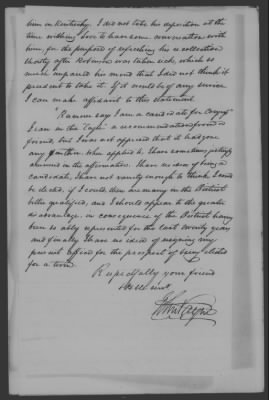 him in Kentucky. I did not take his deposition at the
time wishing to have some conversation with
him, for the purpose of refreshing his recollection
shortly after Robinson was taken sick, which so
much impaired his mind that I did not think it
prudent to take it. If it would be of any service
I can make affidavit to this statement.
"Rumour say I am a candidate for Congress"
I saw in the Eagle a recommendation from a
friend, but I was not apprised that it had gone
any farther. When applied to I have sometimes jestingly
answered in the affirmative. I have no idea of being a
candidate, I have not vanity enough to think I could
be elected, if I could, there are many in the District
better qualified, and I should appear to the greater
disadvantage, in consequence of the District having
been so ably represented for the last twenty years
and finally I have no idea of resigning my
present office for the prospect of being elected
for a term.
Respectfully your friend
John Payne